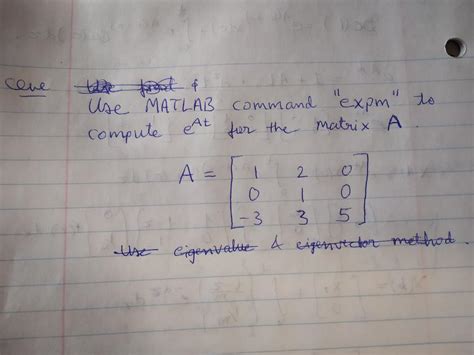 Use &
Use MATLAB command "expm" to
compute e^At for the matrix A.
A = [1 2 0
0 1 0
-3 3 5]
Use eigenvalue & eigenvector method.